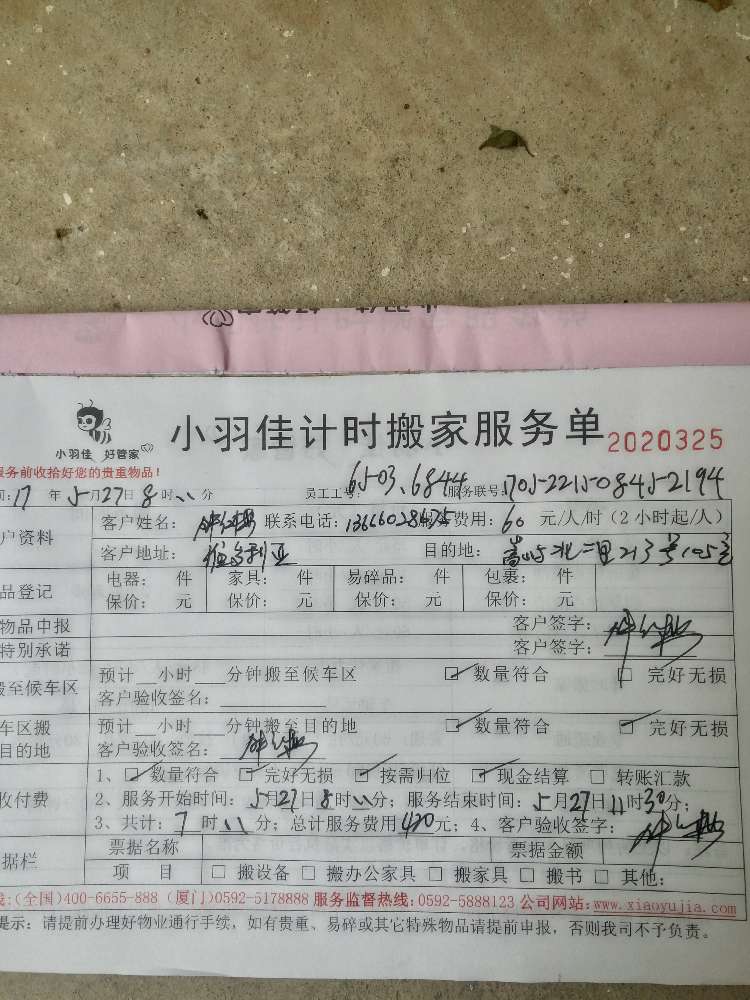 小羽佳 好管家
小羽佳计时搬家服务单 2020325
服务前收拾好您的贵重物品！
间: 17 年 5月27日8时 分 员工工号: 65-03、6844 服务联号: 705-2215-0845-2194
户资料 客户姓名： 联系电话: 费用: 60 元/人/时（2小时起/人）
客户地址： 维多利亚 目的地：
品登记 电器： 件 家具： 件 易碎品： 件 包裹： 件
保价： 元 保价： 元 保价： 元 保价： 元
物品申报 客户签字：
特别承诺 客户签字：
搬至候车区 预计__小时___分钟搬至候车区 ☑ 数量符合 □ 完好无损
客户验收签名：
车区搬 预计__小时___分钟搬至目的地 ☑ 数量符合 ☑ 完好无损
目的地 客户验收签名：
收付费 1、☑ 数量符合 ☑ 完好无损 ☑ 按需归位 ☑ 现金结算 □ 转账汇款
2、服务开始时间：5月27日8时 分；服务结束时间：5月27日11时30分；
3、共计：7 时 分；总计服务费用420元；4、客户验收签字：
据栏 票据名称 票据金额
项 目 □ 搬设备 □ 搬办公家具 □ 搬家具 □ 搬书 □ 其他：
线:(全国)400-6655-888 (厦门)0592-5178888 服务监督热线:0592-5888123 公司网站:www.xiaoyujia.com
提示：请提前办理好物业通行手续，如有贵重、易碎或其它特殊物品请提前申报，否则我司不予负责。